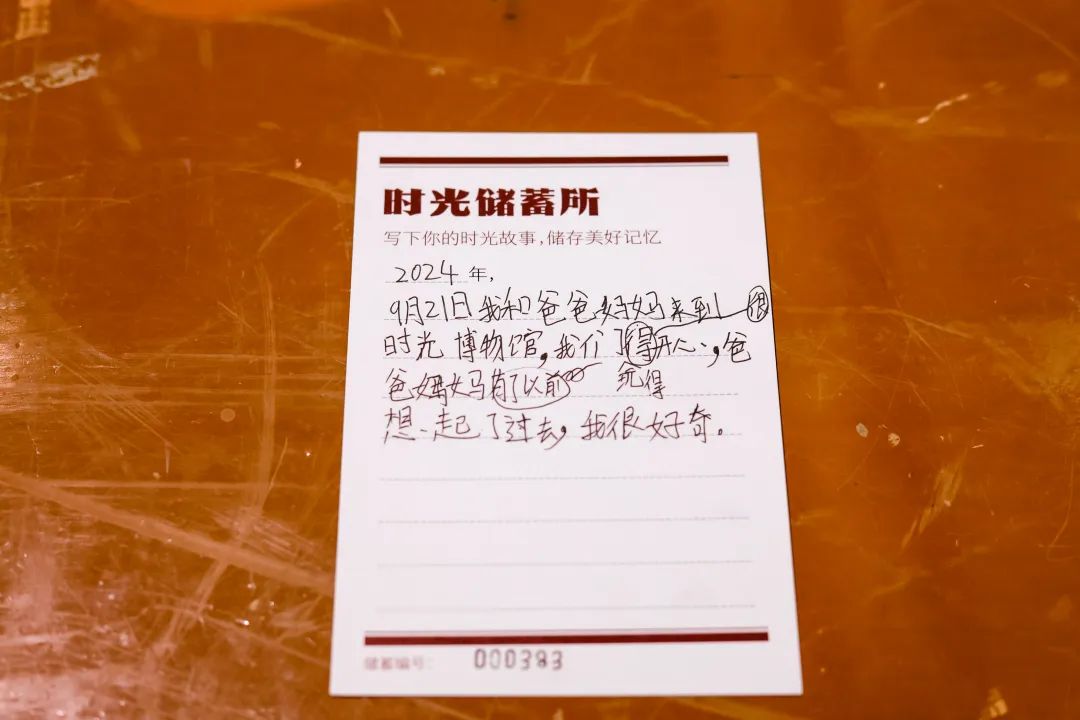 时光储蓄所
写下你的时光故事,储存美好记忆
2024 年,
9月21日我和爸爸妈妈来到 很
时光博物馆,我们得开心,爸
爸妈妈有了以前 玩得
想起了过去,我很好奇。
储蓄编号: 000383